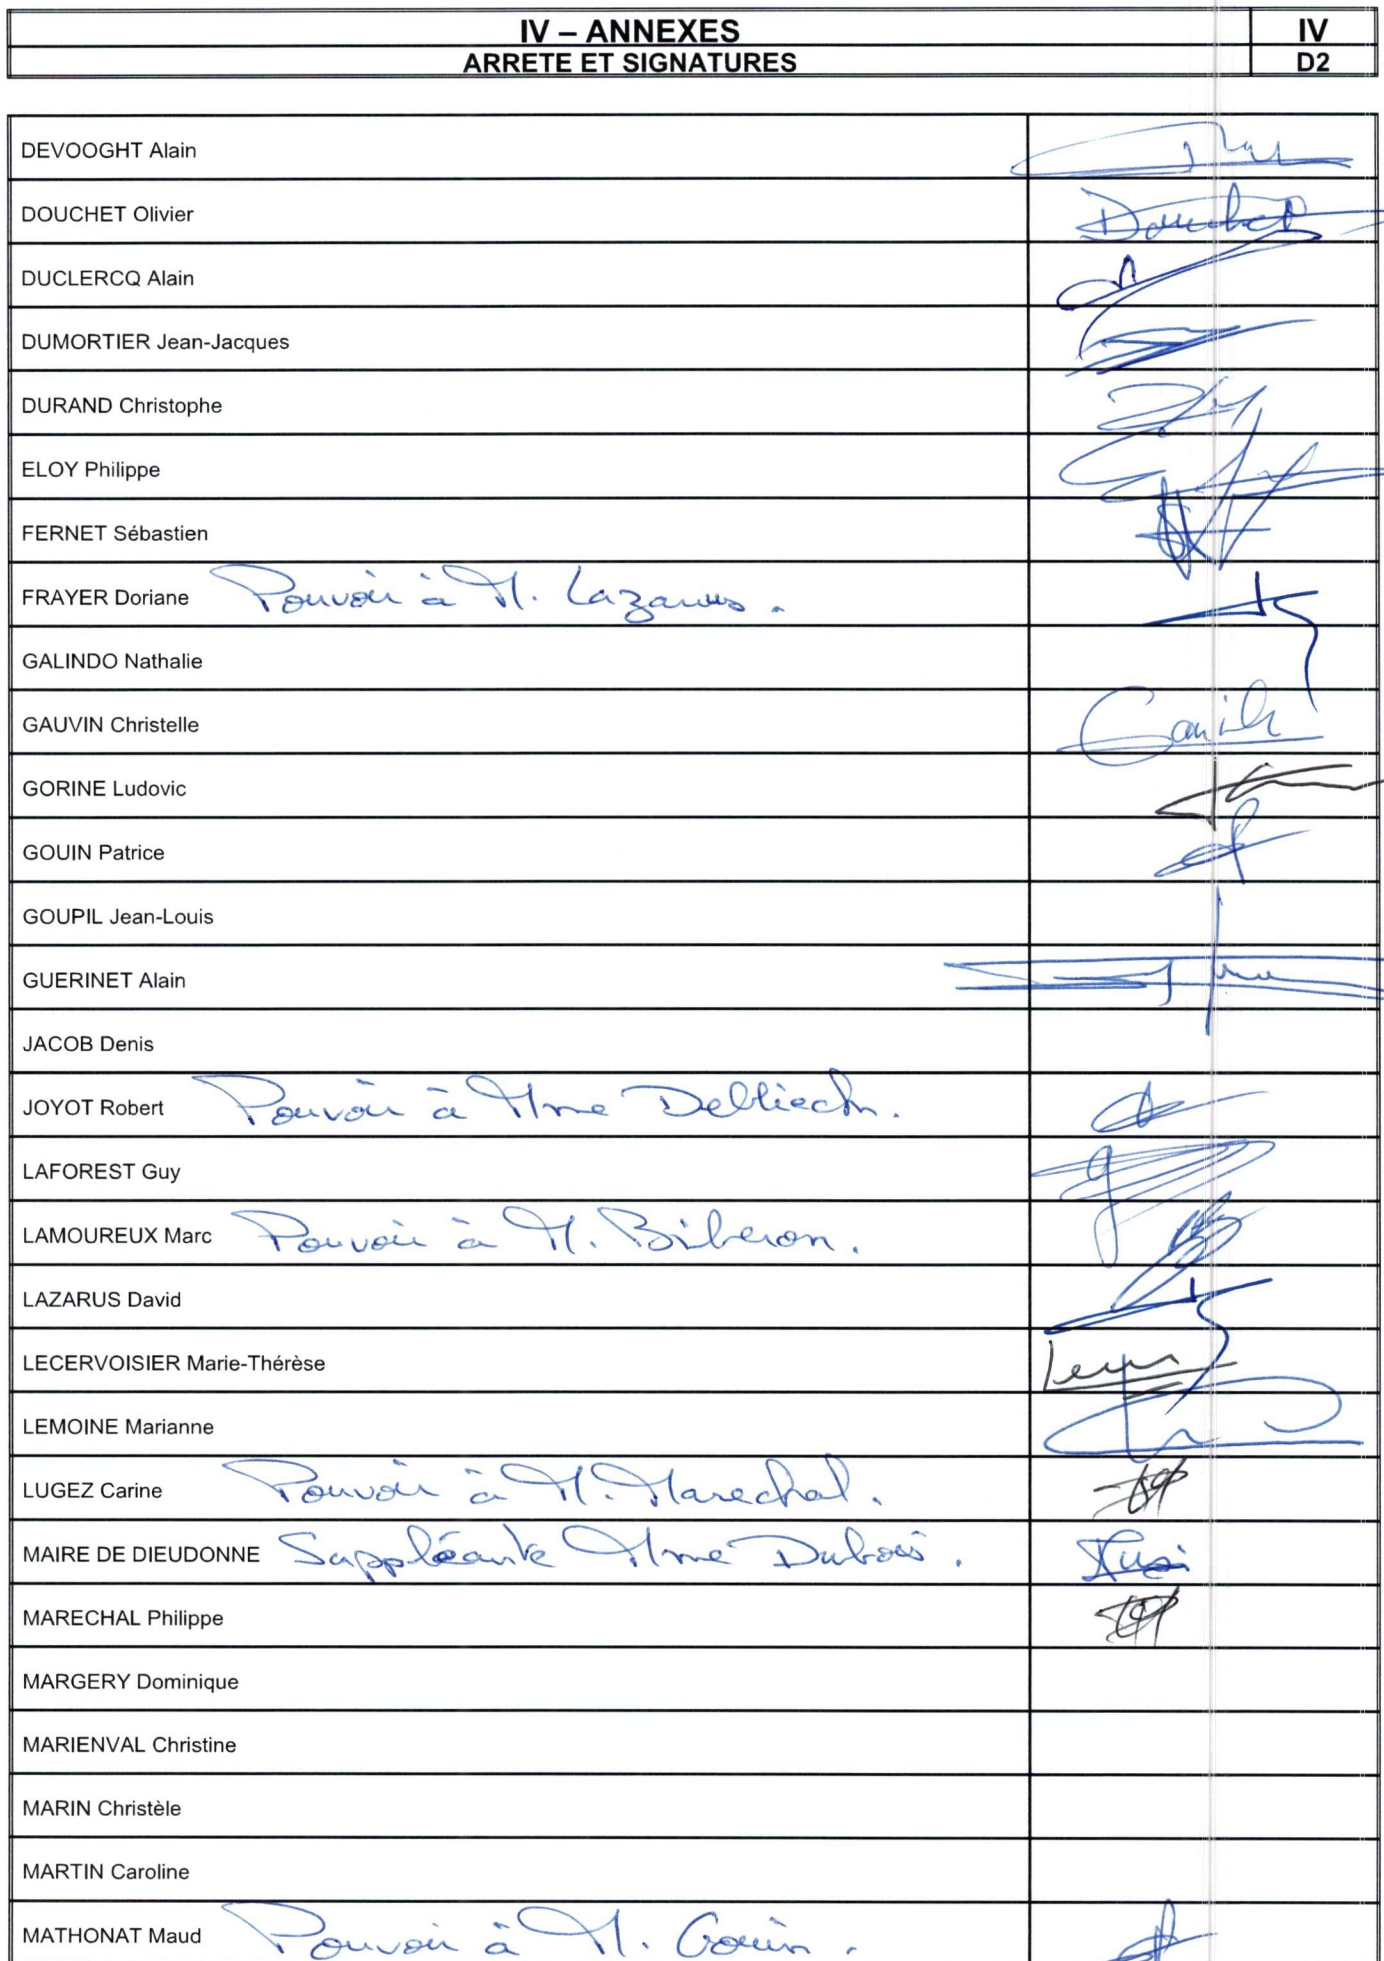 IV – ANNEXES IV
ARRETE ET SIGNATURES D2
DEVOOGHT Alain
DOUCHET Olivier Douchet
DUCLERCQ Alain
DUMORTIER Jean-Jacques
DURAND Christophe
ELOY Philippe
FERNET Sébastien
FRAYER Doriane Pouvoir à M. Lazarus.
GALINDO Nathalie
GAUVIN Christelle
GORINE Ludovic
GOUIN Patrice
GOUPIL Jean-Louis
GUERINET Alain
JACOB Denis
JOYOT Robert Pouvoir à Mme
LAFOREST Guy
LAMOUREUX Marc Pouvoir à M. Biberon.
LAZARUS David
LECERVOISIER Marie-Thérèse
LEMOINE Marianne
LUGEZ Carine Pouvoir à M. Marechal.
MAIRE DE DIEUDONNE Suppléante Mme Dubois.
MARECHAL Philippe
MARGERY Dominique
MARIENVAL Christine
MARIN Christèle
MARTIN Caroline
MATHONAT Maud Pouvoir à M. Gouin.